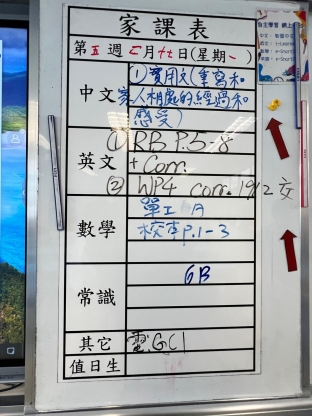 家課表
第五週二月十七日(星期一)
中文
①實用文(重寫和
家人相處的經過和
感受)
英文
① RB P.5-8
+ Corr.
② WP4 corr. 19/2 交
數學
單工 A
校本P.1-3
常識
6B
其它
電.GC1
值日生